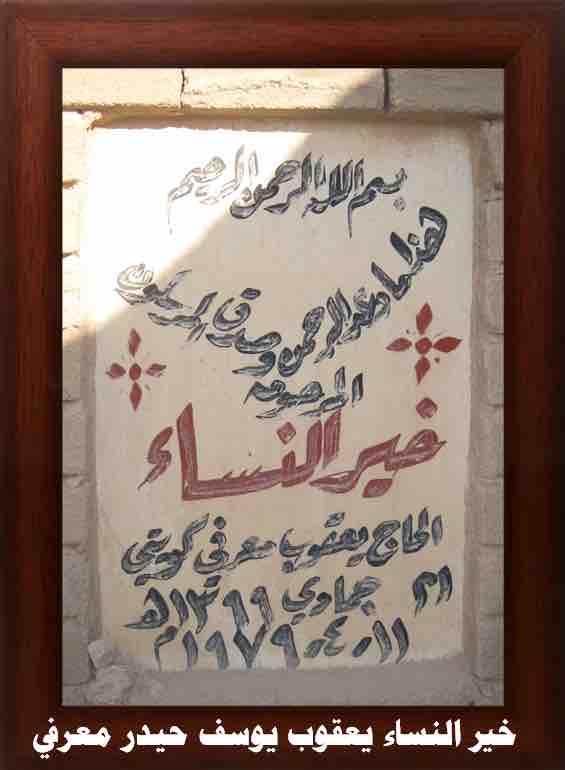 بسم الله الرحمن الرحيم
هذا ما وعد الرحمن وصدق المرسلون
المرحومه
خير النساء
الحاج يعقوب معرفي كويتي
٢١ جمادي ١٣٩٩هـ
١١.٤.١٩٧٩م
خير النساء يعقوب يوسف حيدر معرفي